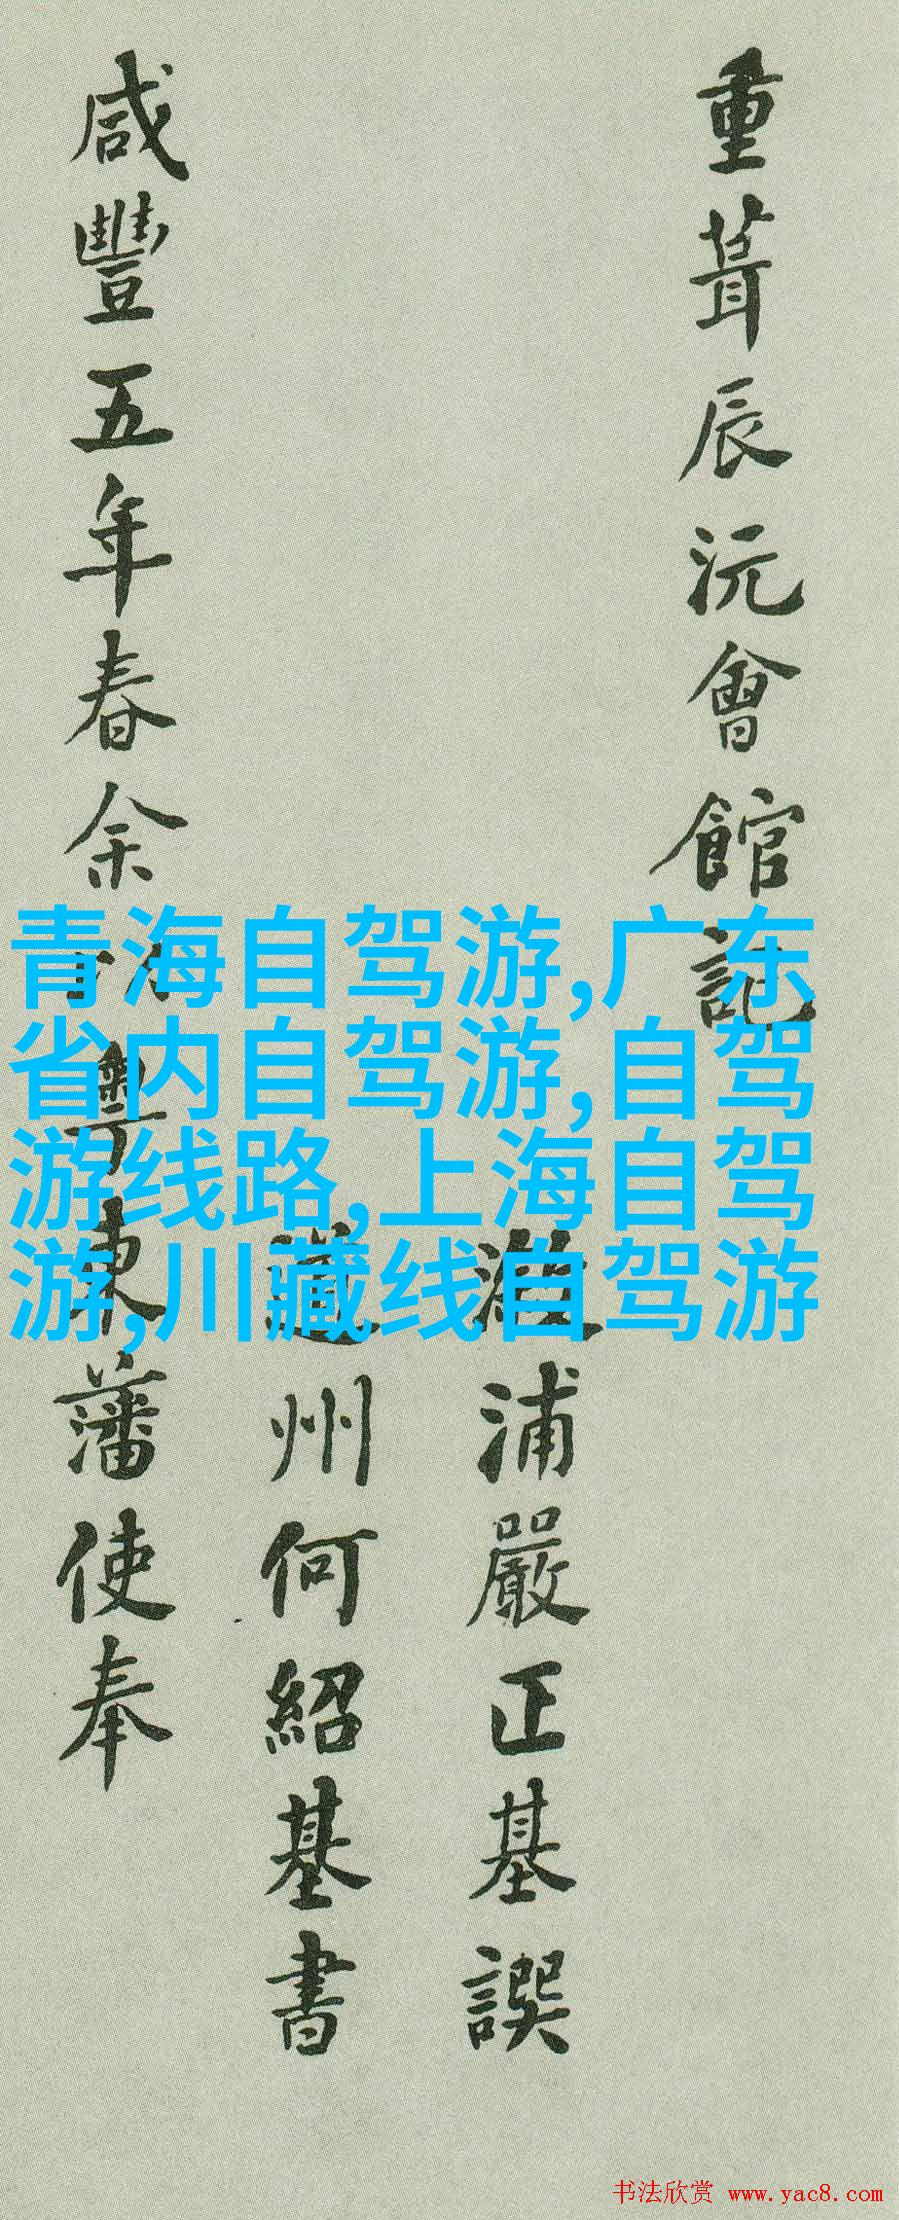 重葺辰沅會館記
浦嚴正基譔
道州何紹基書
咸豐五年春余粵東藩使奉
青海自驾游,广东
省内自驾游,自驾
游线路,上海自驾
游,川藏线自驾游
书法欣赏 www.yac8.com